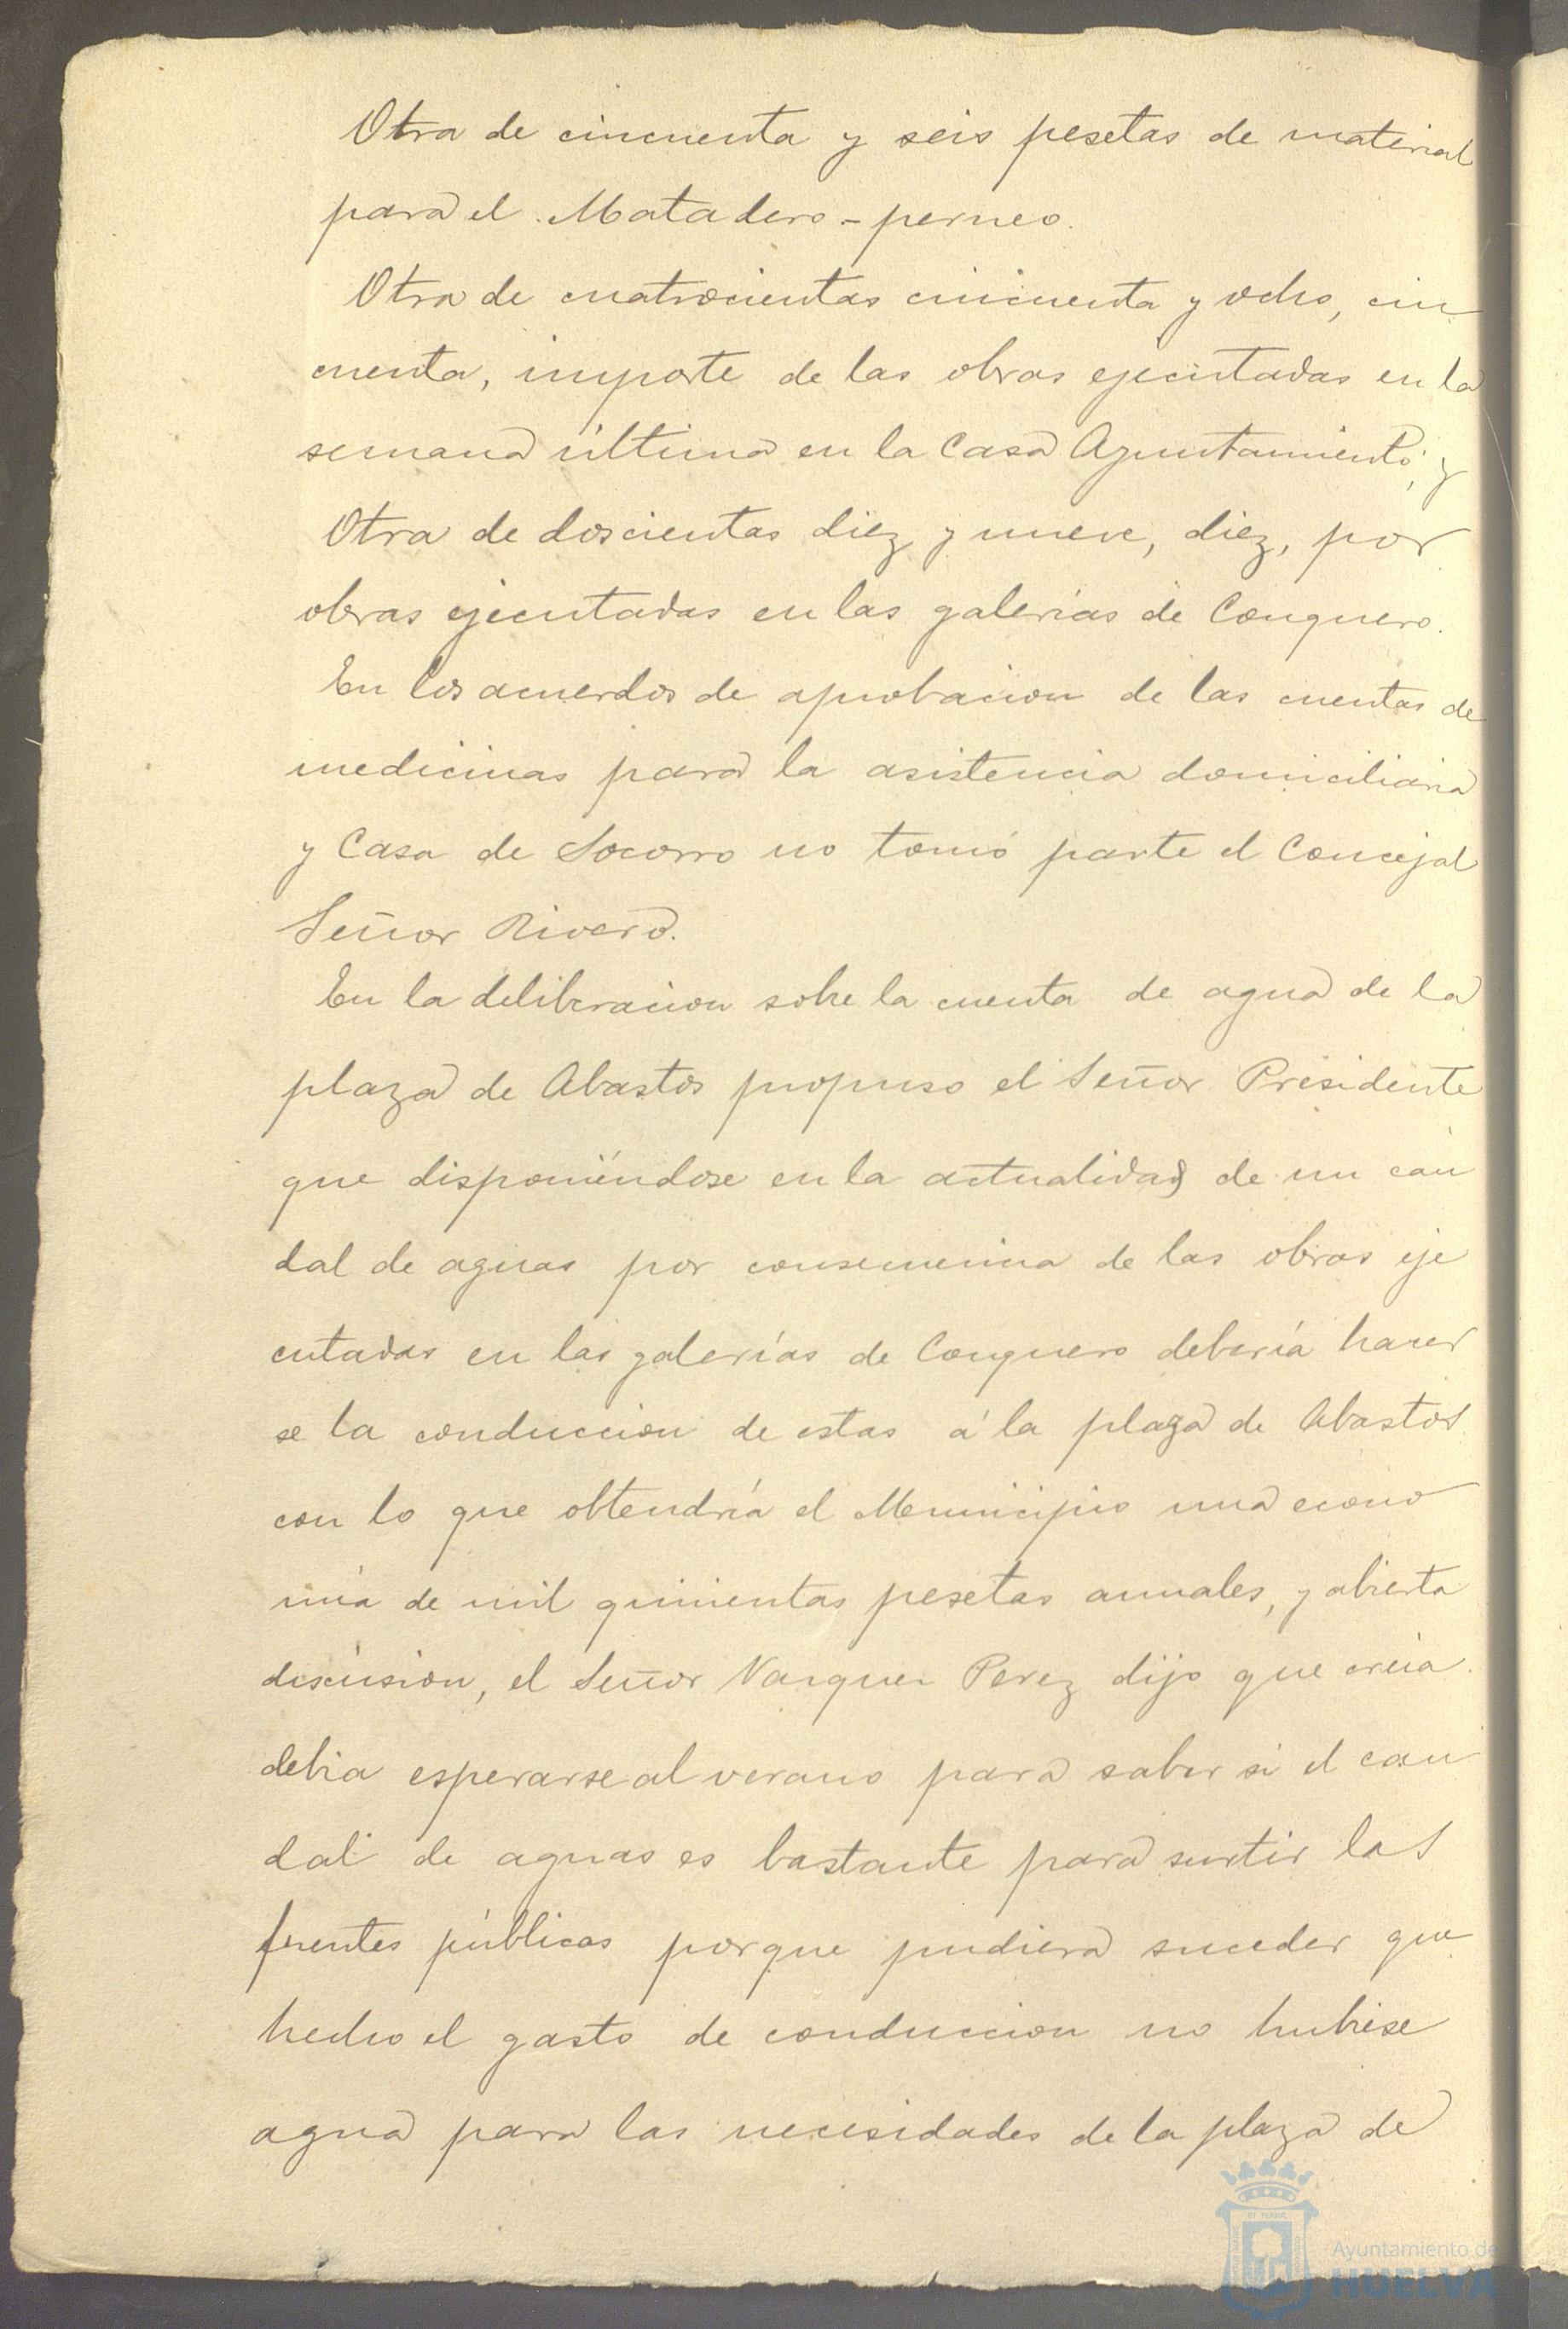 Otra de cincuenta y seis pesetas de material
para el Matadero-perneo.
Otra de cuatrocientas cincuenta y ocho, cin
cuenta, importe de las obras ejecutadas en la
semana última en la Casa Ayuntamiento; y
Otra de doscientas diez y nueve, diez, por
obras ejecutadas en las galerías de Conquero.
En los acuerdos de aprobacion de las cuentas de
medicinas para la asistencia domiciliaria
y Casa de Socorro no tomó parte el Concejal
Señor Rivero.
En la deliberacion sobre la cuenta de agua de la
plaza de Abastos propuso el Señor Presidente
que disponiéndose en la actualidad de un cau
dal de aguas por consecuencia de las obras eje
cutadas en las galerías de Conquero debería hacer
se la conduccion de estas á la plaza de Abastos
con lo que obtendría el Municipio una econo
mía de mil quinientas pesetas anuales, y abierta
discusion, el Señor Vazquez Perez dijo que creia
debia esperarse al verano para saber si el cau
dal de aguas es bastante para surtir las
fuentes públicas porque pudiera suceder que
hecho el gasto de conduccion no hubiese
agua para las necesidades de la plaza de
Ayuntamiento de
HUELVA